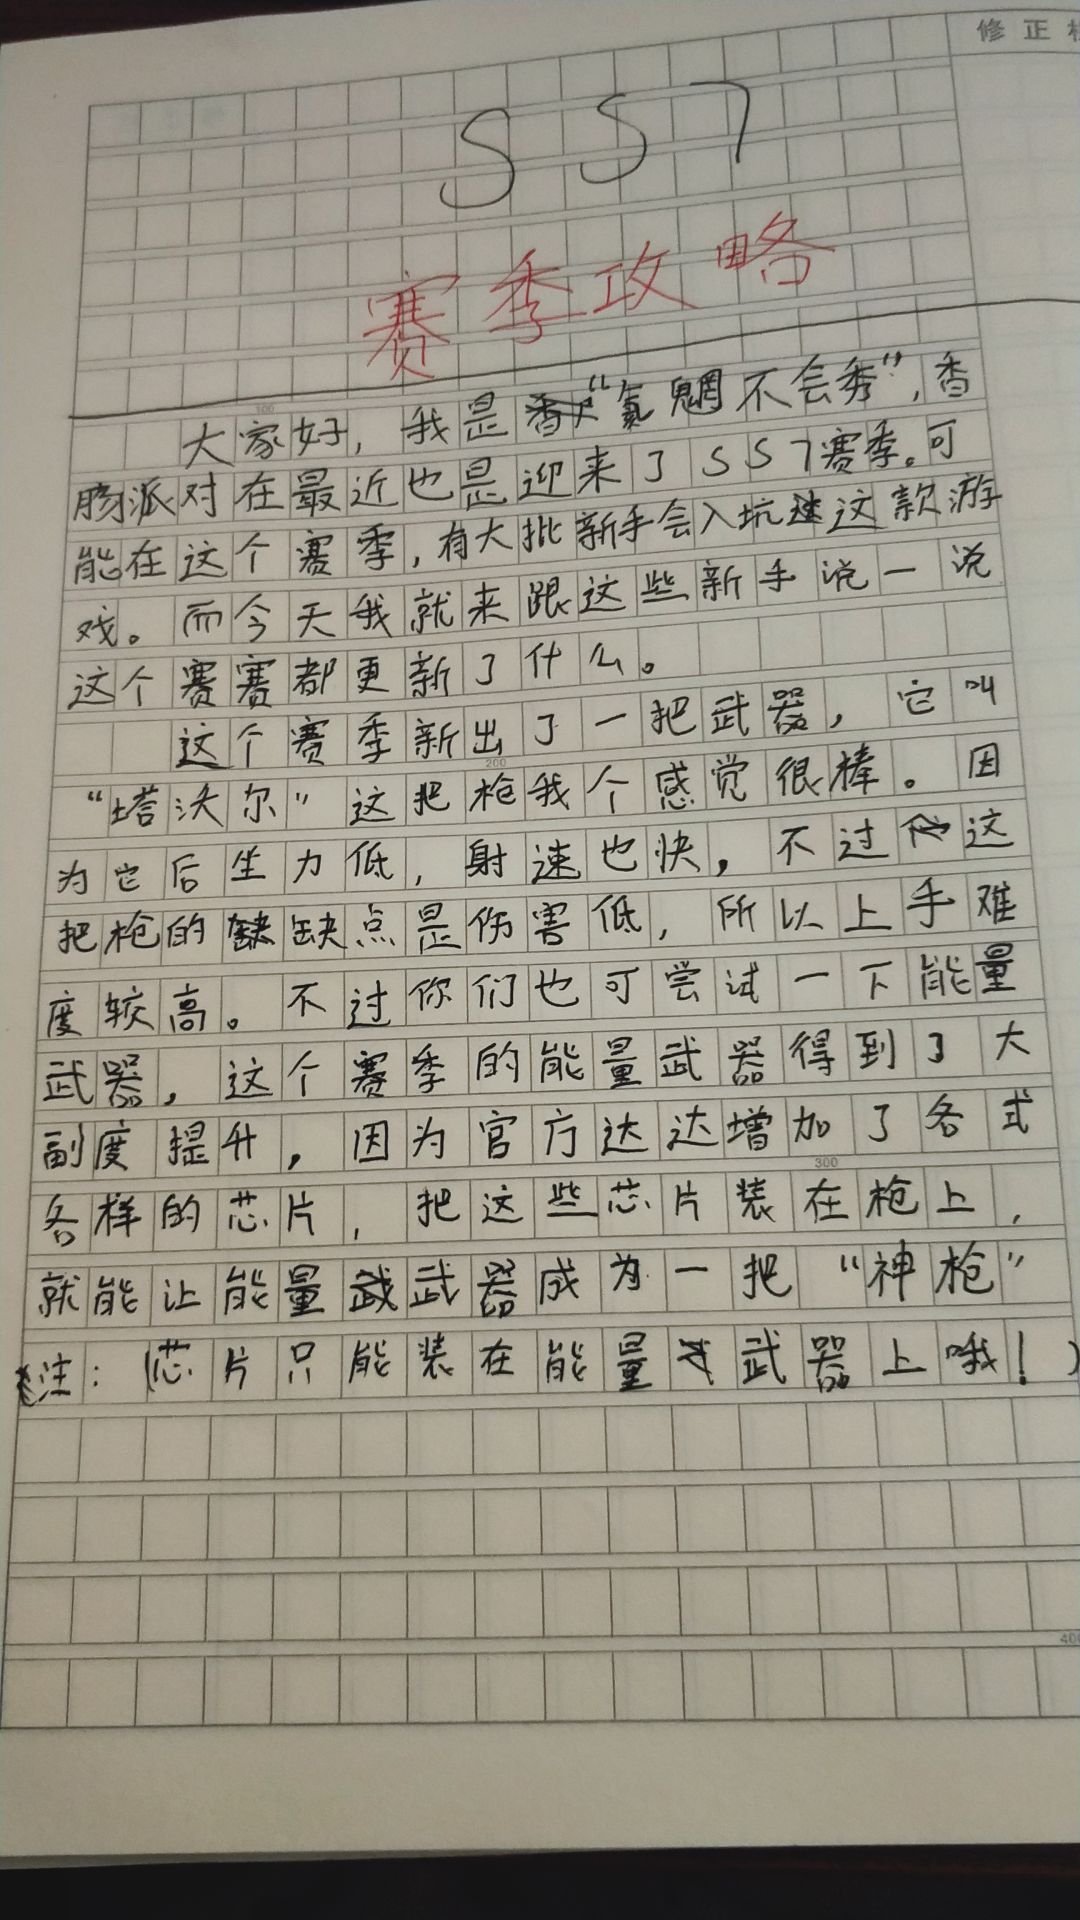 修正
SS7
赛季攻略
大家好，我是“氯魍不会秀”，香
肠派对在最近也是迎来了SS7赛季。可
能在这个赛季，有大批新手会入坑这款游
戏。而今天我就来跟这些新手说一说
这个赛赛都更新了什么。
这个赛季新出了一把武器，它叫
200
“塔沃尔”这把枪我个感觉很棒。因
为它后坐力低，射速也快，不过这
把枪的缺缺点是伤害低，所以上手难
度较高。不过你们也可尝试一下能量
武器，这个赛季的能量武器得到了大
副度提升，因为官方达达增加了各式
300
各样的芯片，把这些芯片装在枪上，
就能让能量武武器成为一把“神枪”
注：(芯片只能装在能量武器上哦！)